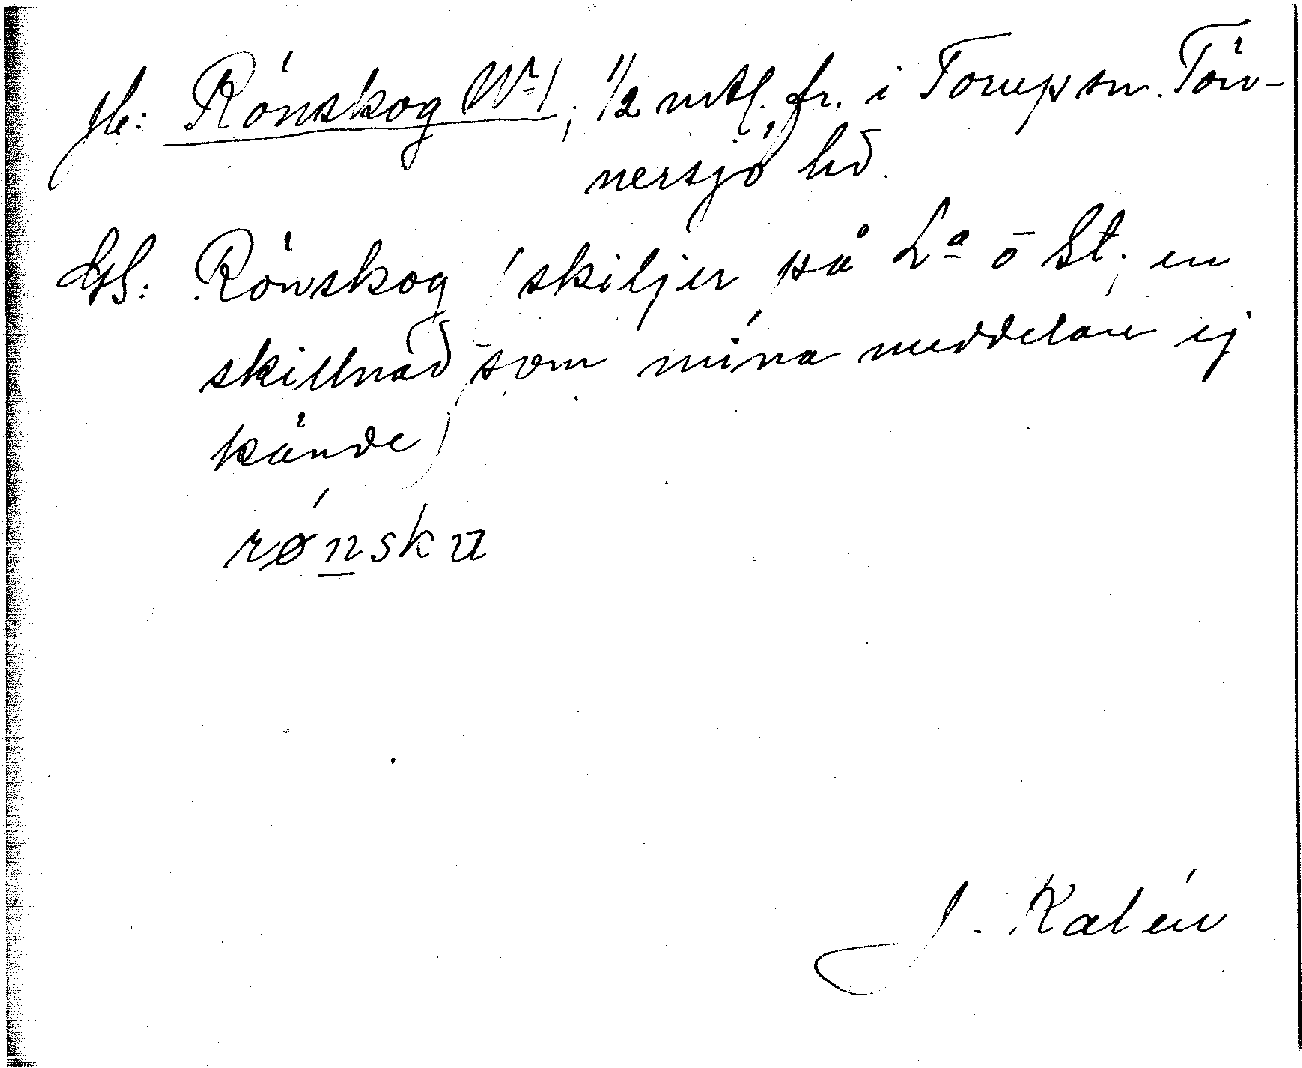 Jb: Rönskog No 1, 1/2 mtl. fr. i Torup sn. Tön-
nersjö hd.
GS: Rönskog (skiljer på La o St. en
skillnad som mina meddelare ej
kände)
rønsku
J. Kalén